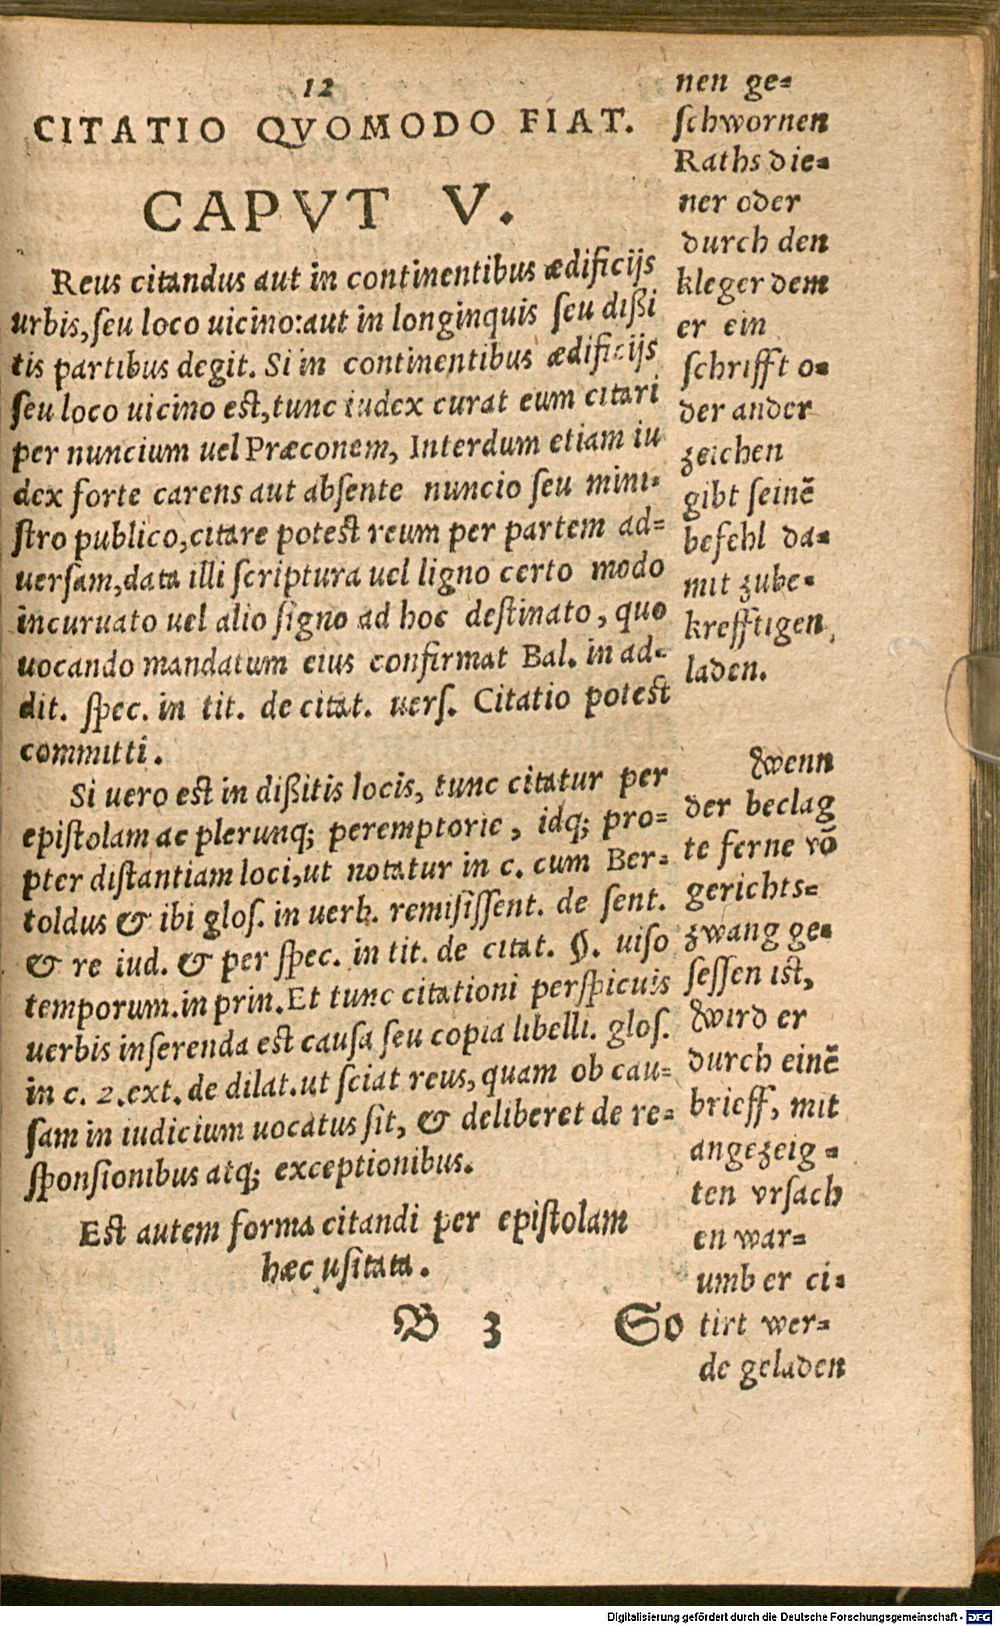 12
CITATIO QVOMODO FIAT.
CAPVT V.
Reus citandus aut in continentibus ædificijs
urbis, ſeu loco uicino: aut in longinquis ſeu dißi
tis partibus degit. Si in continentibus ædificijs
ſeu loco uicino eſt, tunc iudex curat eum citari
per nuncium uel Præconem, Interdum etiam iu
dex forte carens aut abſente nuncio ſeu mini-
ſtro publico, citare poteſt reum per partem ad-
uerſam, data illi ſcriptura uel ligno certo modo
incuruato uel alio ſigno ad hoc deſtinato, quo
uocando mandatum eius confirmat Bal. in ad-
dit. ſpec. in tit. de citat. uerſ. Citatio poteſt
committi.
Si uero eſt in dißitis locis, tunc citatur per
epiſtolam ac plerunq; peremptorie, idq; pro-
pter diſtantiam loci, ut notatur in c. cum Ber-
toldus & ibi gloſ. in uerb. remiſiſſent. de ſent.
& re iud. & per ſpec. in tit. de citat. §. uiſo
temporum. in prin. Et tunc citationi perſpicuis
uerbis inſerenda eſt cauſa ſeu copia libelli. gloſ.
in c. 2. ext. de dilat. ut ſciat reus, quam ob cau-
ſam in iudicium uocatus ſit, & deliberet de re-
ſponſionibus atq; exceptionibus.
Eſt autem forma citandi per epiſtolam
hæc uſitata.
B 3 So
nen ge-
ſchwornen
Raths die-
ner oder
durch den
kleger dem
er ein
ſchrifft o-
der ander
zeichen
gibt ſeinē
befehl da-
mit zube-
krefftigen,
laden.
Wenn
der beclag
te ferne vō
gerichts-
zwang ge-
ſeſſen iſt,
Wird er
durch einē
brieff, mit
angezeig-
ten vrſach
en war-
umb er ci-
tirt wer-
de geladen
Digitalisierung gefördert durch die Deutsche Forschungsgemeinschaft - DFG